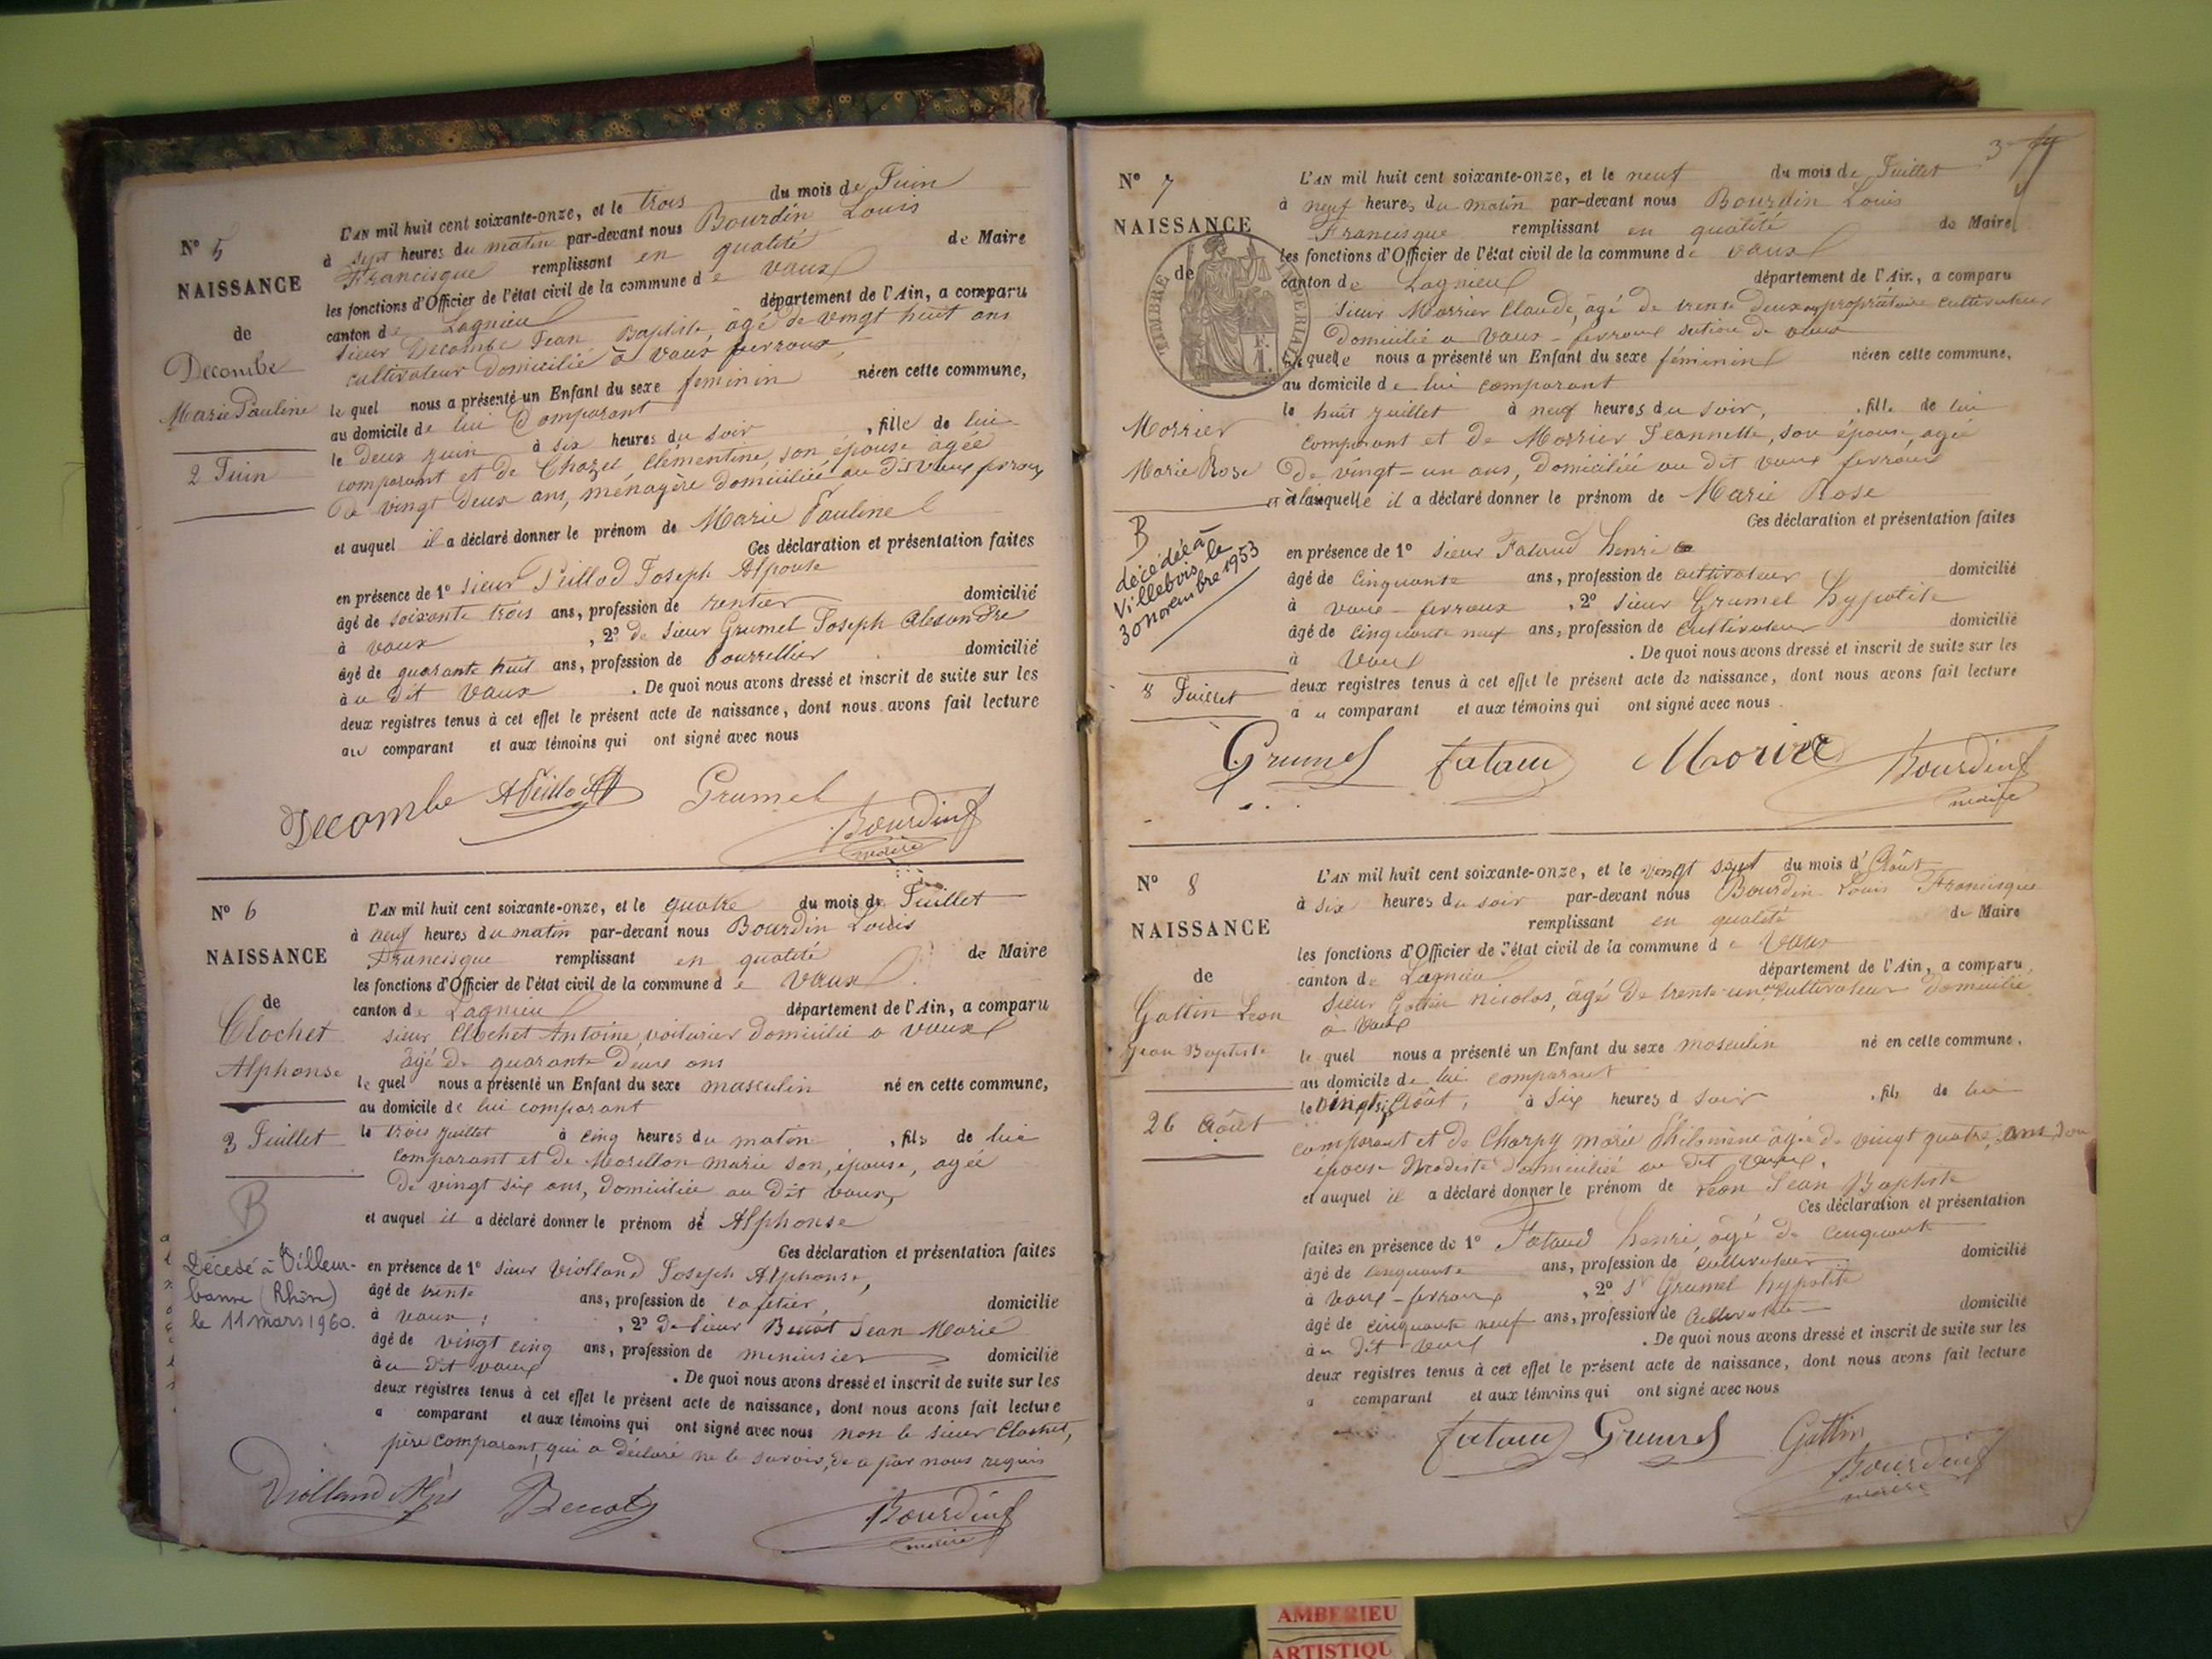 N° 5
NAISSANCE
de
Decombe
Marie Pauline
2 Juin
L'AN mil huit cent soixante-onze, et le trois du mois de Juin
à sept heures du matin par-devant nous Bourdin Louis
Francisque remplissant en qualité de Maire
les fonctions d'Officier de l'état civil de la commune de Vaux
canton de Lagnieu département de l'Ain, a comparu
sieur Decombe Jean Baptiste, âgé de vingt huit ans
cultivateur domicilié à Vaux ferroux,
le quel nous a présenté un Enfant du sexe feminin née en cette commune,
au domicile de lui Comparant
le deux juin à six heures du soir, fille de lui
comparant et de Chazel Clémentine, son épouse âgée
de vingt deux ans, ménagère domiciliée au dit Vaux ferroux
et auquel il a déclaré donner le prénom de Marie Pauline
Ces déclaration et présentation faites
en présence de 1° sieur Peillod Joseph Alponse
âgé de soixante trois ans, profession de rentier domicilié
à Vaux, 2° de sieur Grumel Joseph Alexandre
âgé de quarante huit ans, profession de Bourrellier domicilié
à u dit Vaux. De quoi nous avons dressé et inscrit de suite sur les
deux registres tenus à cet effet le présent acte de naissance, dont nous avons fait lecture
au comparant et aux témoins qui ont signé avec nous
Decombe APeillod Grumel
Bourdin f
maire
N° 6
NAISSANCE
de
Clochet
Alphonse
3 Juillet
B
Décedé à Villeur-
banne (Rhône)
le 11 mars 1960.
L'AN mil huit cent soixante-onze, et le quatre du mois de Juillet
à neuf heures du matin par-devant nous Bourdin Louis
Francisque remplissant en qualité de Maire
les fonctions d'Officier de l'état civil de la commune de Vaux
canton de Lagnieu département de l'Ain, a comparu
sieur Clochet Antoine, voiturier domicilié a Vaux
âgé de quarante deux ans
le quel nous a présenté un Enfant du sexe masculin né en cette commune,
au domicile de lui comparant
le trois juillet à cinq heures du matin, fils de lui
comparant et de Morellon marie son épouse, agée
de vingt six ans, domiciliée au dit Vaux,
et auquel il a déclaré donner le prénom de Alphonse
Ces déclaration et présentation faites
en présence de 1° sieur Violland Joseph Alphonse,
âgé de trente ans, profession de cafetier, domicilié
à Vaux, 2° de sieur Benoit Jean Marie
âgé de vingt cinq ans, profession de menuisier domicilié
à u dit Vaux. De quoi nous avons dressé et inscrit de suite sur les
deux registres tenus à cet effet le présent acte de naissance, dont nous avons fait lecture
a comparant et aux témoins qui ont signé avec nous non le sieur Clochet,
père comparant, qui a déclaré ne le savoir, de a par nous requis
Violland Alps Benoit
Bourdin f
maire
N° 7
NAISSANCE
de
TIMBRE IMPERIAL
Morrier
Marie Rose
B
décédée à
Villebois le
30 novembre 1953
8 Juillet
L'AN mil huit cent soixante-onze, et le neuf du mois de Juillet
à neuf heures du matin par-devant nous Bourdin Louis
Francisque remplissant en qualité de Maire
les fonctions d'Officier de l'état civil de la commune de Vaux
canton de Lagnieu département de l'Ain, a comparu
sieur Morrier Claude, âgé de trente deux ans propriétaire cultivateur
domicilié a Vaux-ferroux section de Vaux
le quel nous a présenté un Enfant du sexe féminin née en cette commune,
au domicile de lui comparant
le huit juillet à neuf heures du soir, fille de lui
comparant et de Morrier Jeannette, son épouse, agée
de vingt-un ans, domiciliée au dit Vaux ferroux
et à laquelle il a déclaré donner le prénom de Marie Rose
Ces déclaration et présentation faites
en présence de 1° sieur Fataud henri
âgé de cinquante ans, profession de cultivateur domicilié
à Vaux-ferroux, 2° sieur Grumel hypolite
âgé de cinquante neuf ans, profession de cultivateur domicilié
à Vaux. De quoi nous avons dressé et inscrit de suite sur les
deux registres tenus à cet effet le présent acte de naissance, dont nous avons fait lecture
a u comparant et aux témoins qui ont signé avec nous.
Grumel fataud Morier
Bourdin f
maire
N° 8
NAISSANCE
de
Gattin Leon
Jean Baptiste
26 Août
L'AN mil huit cent soixante-onze, et le vingt sept du mois d'Août
à six heures du soir par-devant nous Bourdin Louis Francisque
remplissant en qualité de Maire
les fonctions d'Officier de l'état civil de la commune de Vaux
canton de Lagnieu département de l'Ain, a comparu
sieur Gattin nicolas, âgé de trente-un cultivateur domicilié
à Vaux
le quel nous a présenté un Enfant du sexe masculin né en cette commune.
au domicile de lui comparant
le vingt six Août, à six heures d soir, fils de lui
comparant et de Charpy marie Philomène âgée de vingt quatre ans, son
épouse Modiste domiciliée au dit Vaux,
et auquel il a déclaré donner le prénom de Léon Jean Baptiste
Ces déclaration et présentation
faites en présence de 1° Fataud henri, âgé de cinquante
âgé de cinquante ans, profession de cultivateur domicilié
à Vaux-ferroux, 2° sr Grumel hypolite
âgé de cinquante neuf ans, profession de cultivateur domicilié
à u dit Vaux. De quoi nous avons dressé et inscrit de suite sur les
deux registres tenus à cet effet le présent acte de naissance, dont nous avons fait lecture
a comparant et aux témoins qui ont signé avec nous
fataud Grumel Gattin
Bourdin f
maire
AMBERIEU
ARTISTIQU